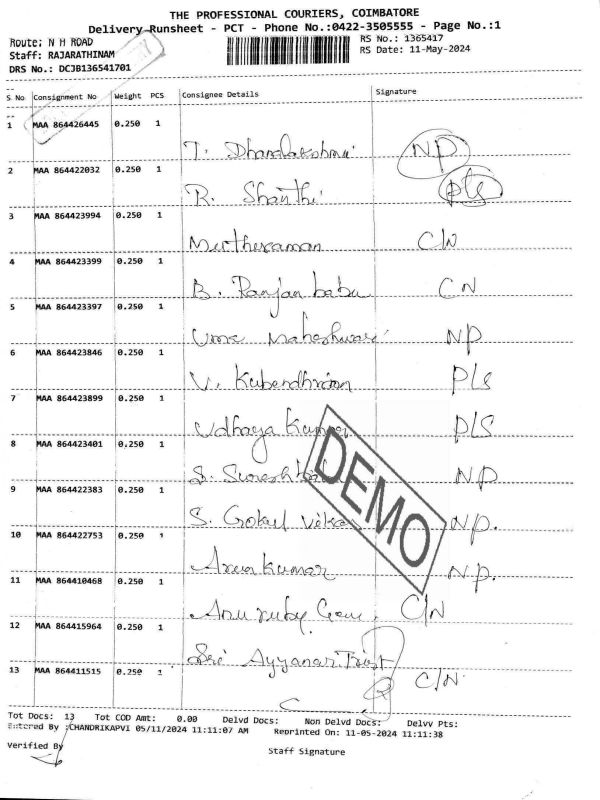 THE PROFESSIONAL COURIERS, COIMBATORE
Delivery Runsheet - PCT - Phone No.:0422-3505555 - Page No.:1
Route: N H ROAD
RS No.: 1365417
Staff: RAJARATHINAM
RS Date: 11-May-2024
DRS No.: DCJB136541701
S No Consignment No Weight PCS Consignee Details Signature
1 MAA 864426445 0.250 1
T. Dhanalakshmi NP
2 MAA 864422032 0.250 1
R. Shanthi pls
3 MAA 864423994 0.250 1
Muthuraman C/N
4 MAA 864423399 0.250 1
B. Ranjan babu CN
5 MAA 864423397 0.250 1
Uma Maheshwari NP
6 MAA 864423846 0.250 1
V. Kubendhiran PLS
7 MAA 864423899 0.250 1
Udhaya Kumar PLS
8 MAA 864423401 0.250 1
S. Suresh NP
9 MAA 864422383 0.250 1
S. Gokul NP.
10 MAA 864422753 0.250 1
Arun kumar NP.
11 MAA 864410468 0.250 1
Anu ruby C/N
12 MAA 864415964 0.250 1
Sri Ayyanar Trust
13 MAA 864411515 0.250 1
C/N
DEMO
Tot Docs: 13 Tot COD Amt: 0.00 Delvd Docs: Non Delvd Docs: Delvv Pts:
Entered By :CHANDRIKAPVI 05/11/2024 11:11:07 AM Reprinted On: 11-05-2024 11:11:38
Verified By
Staff Signature